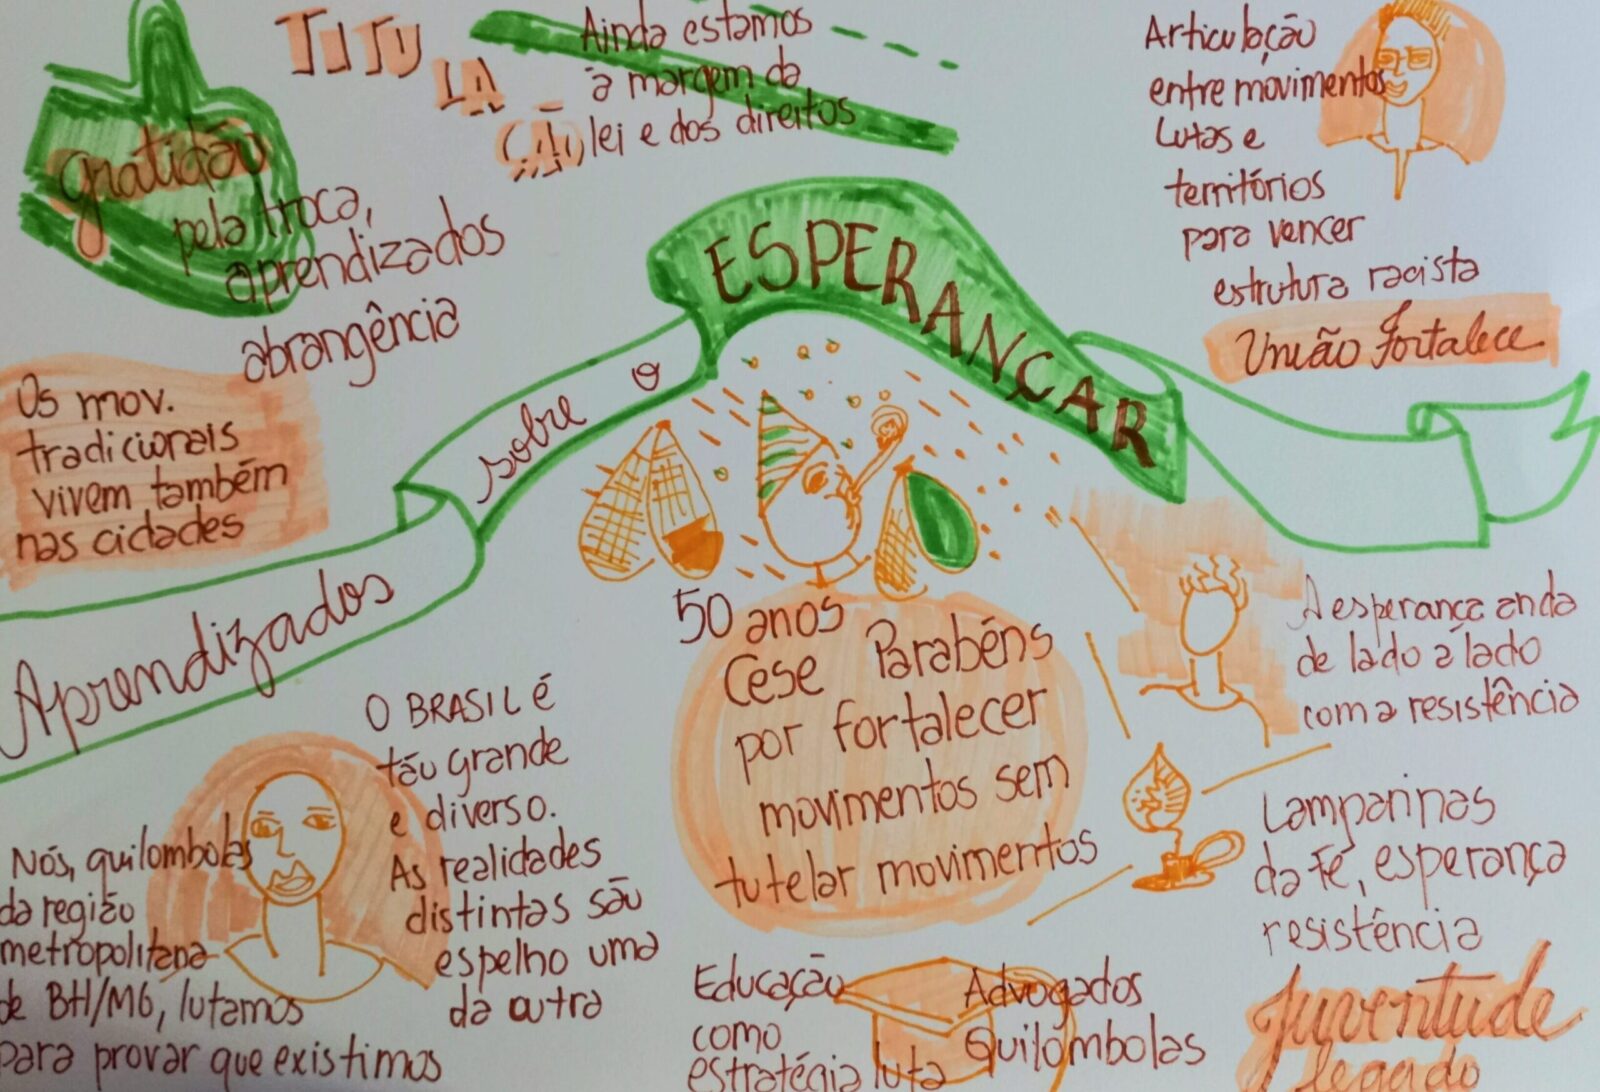 TITU
LA
ÇÃO
Ainda estamos
à margem da
lei e dos direitos
Gratidão
pela troca,
aprendizados
abrangência
Articulação
entre movimentos
Lutas e
territórios
para vencer
estrutura racista
União fortalece
Os mov.
tradicionais
vivem também
nas cidades
Aprendizados
sobre o
ESPERANÇAR
50 anos
Cese Parabéns
por fortalecer
movimentos sem
tutelar movimentos
A esperança anda
de lado a lado
com a resistência
Lamparinas
da Fé, esperança
resistência
O BRASIL é
tão grande
e diverso.
As realidades
distintas são
espelho uma
da outra
Nós, quilombolas
da região
metropolitana
de BH/MG, lutamos
para provar que existimos
Educação
como
estratégia luta
Advogados
Quilombolas
Juventude
legado